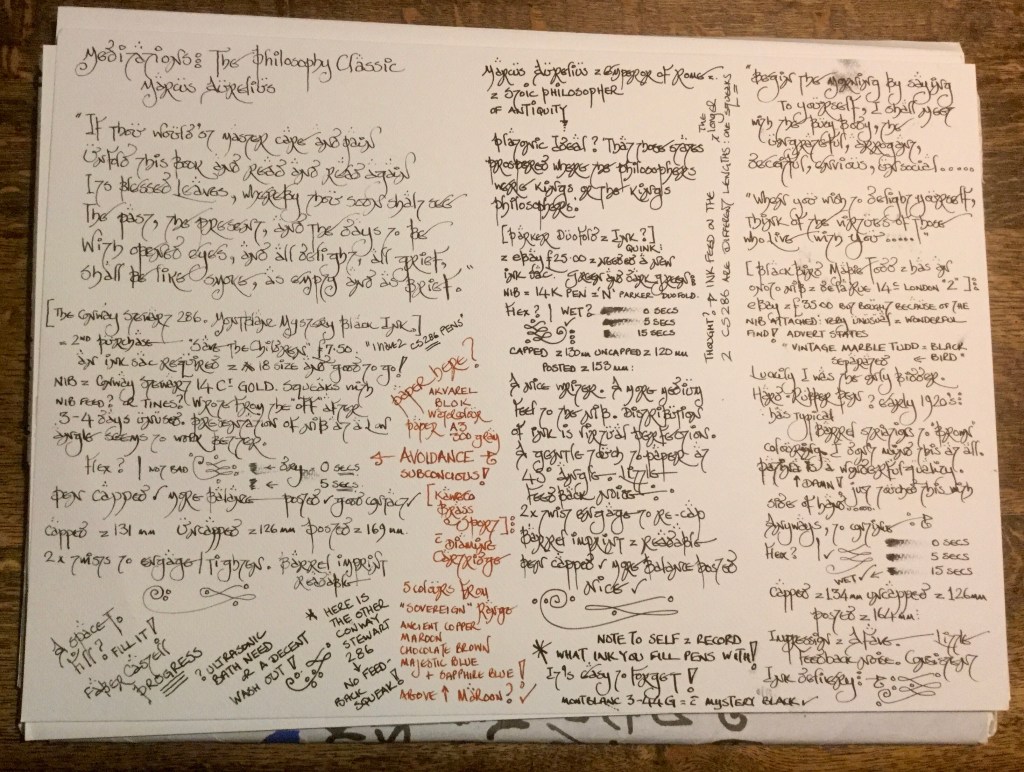 Meditations: The Philosophy Classic
Marcus Aurelius
"If thou would'st master care and pain
Unfold this book and read and read again
Its blessed leaves, whereby thou soon shalt see
The past, the present, and the days to be
With opened eyes, and all delight, all grief,
Shall be like smoke, as empty and as brief."
[The Conway Stewart 286. Montblanc Mystery Black Ink.]
= 2nd purchase "Save the Children" £7.50 "I have 2 CS 286 pens"
an ink sac required = A 18 size and good to go!
Nib = Conway Stewart 14 Ct Gold. Squeaks with
nib feed? or tines? Wrote from the "off" after
3-4 days unused. Presentation of nib at a low
angle seems to work better.
Hex? | Not bad
dry 0 secs
5 secs
Pen capped ✓ more balance posted ✓ good contact ✓
Capped = 131 mm Uncapped = 126 mm Posted = 169 mm.
2x twists to engage/tighten. Barrel imprint
readable
A space to
fill? Fill it!
Faber Castell
progress
? Ultrasonic
bath need
or a decent
wash out!
* Here is
the other
Conway
Stewart
286
↓
No feed-
back
squeak!
Paper here?
Akvarel
Blok
Watercolour
paper A3
300 g/m
← Avoidance →
subconscious!
[Kaweco
Brass
Sport]:
c Diamine
Cartridge
5 colours from
"Sovereign" range
Ancient Copper
Maroon
Chocolate Brown
Majestic Blue
+ Sapphire Blue!
Above ↑ Maroon? ✓
Marcus Aurelius = Emperor of Rome =
= Stoic philosopher
of antiquity
Platonic Ideal? That those states
prospered where the philosophers
were kings or the kings
philosophers.
[Parker Duofold = Ink?]
Quink:
= eBay £25.00 = needed a new
ink sac. Green and dark green:
Nib = 14K Pen = 'N' Parker-Duofold.
Hex? | Wet?
0 secs
5 secs
15 secs
Capped = 130 mm Uncapped = 120 mm
Posted = 153 mm:
A nice writer. A more medium
feel to the nib. Distribution
of ink is virtual perfection.
A gentle touch to paper at
45° angle. Little
feedback noise.
2x twist engage to re-cap
Barrel imprint = readable
Pen capped ✓ more balance posted
Nice ✓
* Note to self = record
what ink you fill pens with!
It's easy to forget!
Montblanc 3-44G = c Mystery Black ✓
Thought? → Ink feed on the
2 CS286 are different lengths: one squeaks
The
longer
"Begin the morning by saying
to yourself, I shall meet
with the busy body, the
ungrateful, arrogant,
deceitful, envious, unsocial.....
"When you wish to delight yourself,
think of the virtues of those
who live with you....."
[Blackbird Mabie Todd = has an
onoto nib = De La Rue 14ct London "2"]:
eBay = £33.00 but bought because of the
nib attached: very unusual = wonderful
find! Advert states
"Vintage Marble Tudd = Black
separated ← Bird"
Luckily I was the only bidder.
Hard-Rubber pen? Early 1920's:
has typical
barrel striations to "brown"
colouring. I don't mind this at all.
Patina to a wonderful quality.
↑ Damn! just touched this with
side of hand.....
Anyways, to continue
Hex? | ✓
Wet ✓ ←
0 secs
5 secs
15 secs
Capped = 134 mm Uncapped = 126 mm
Posted = 164 mm:
Little
feedback noise. Consistent
ink delivery: